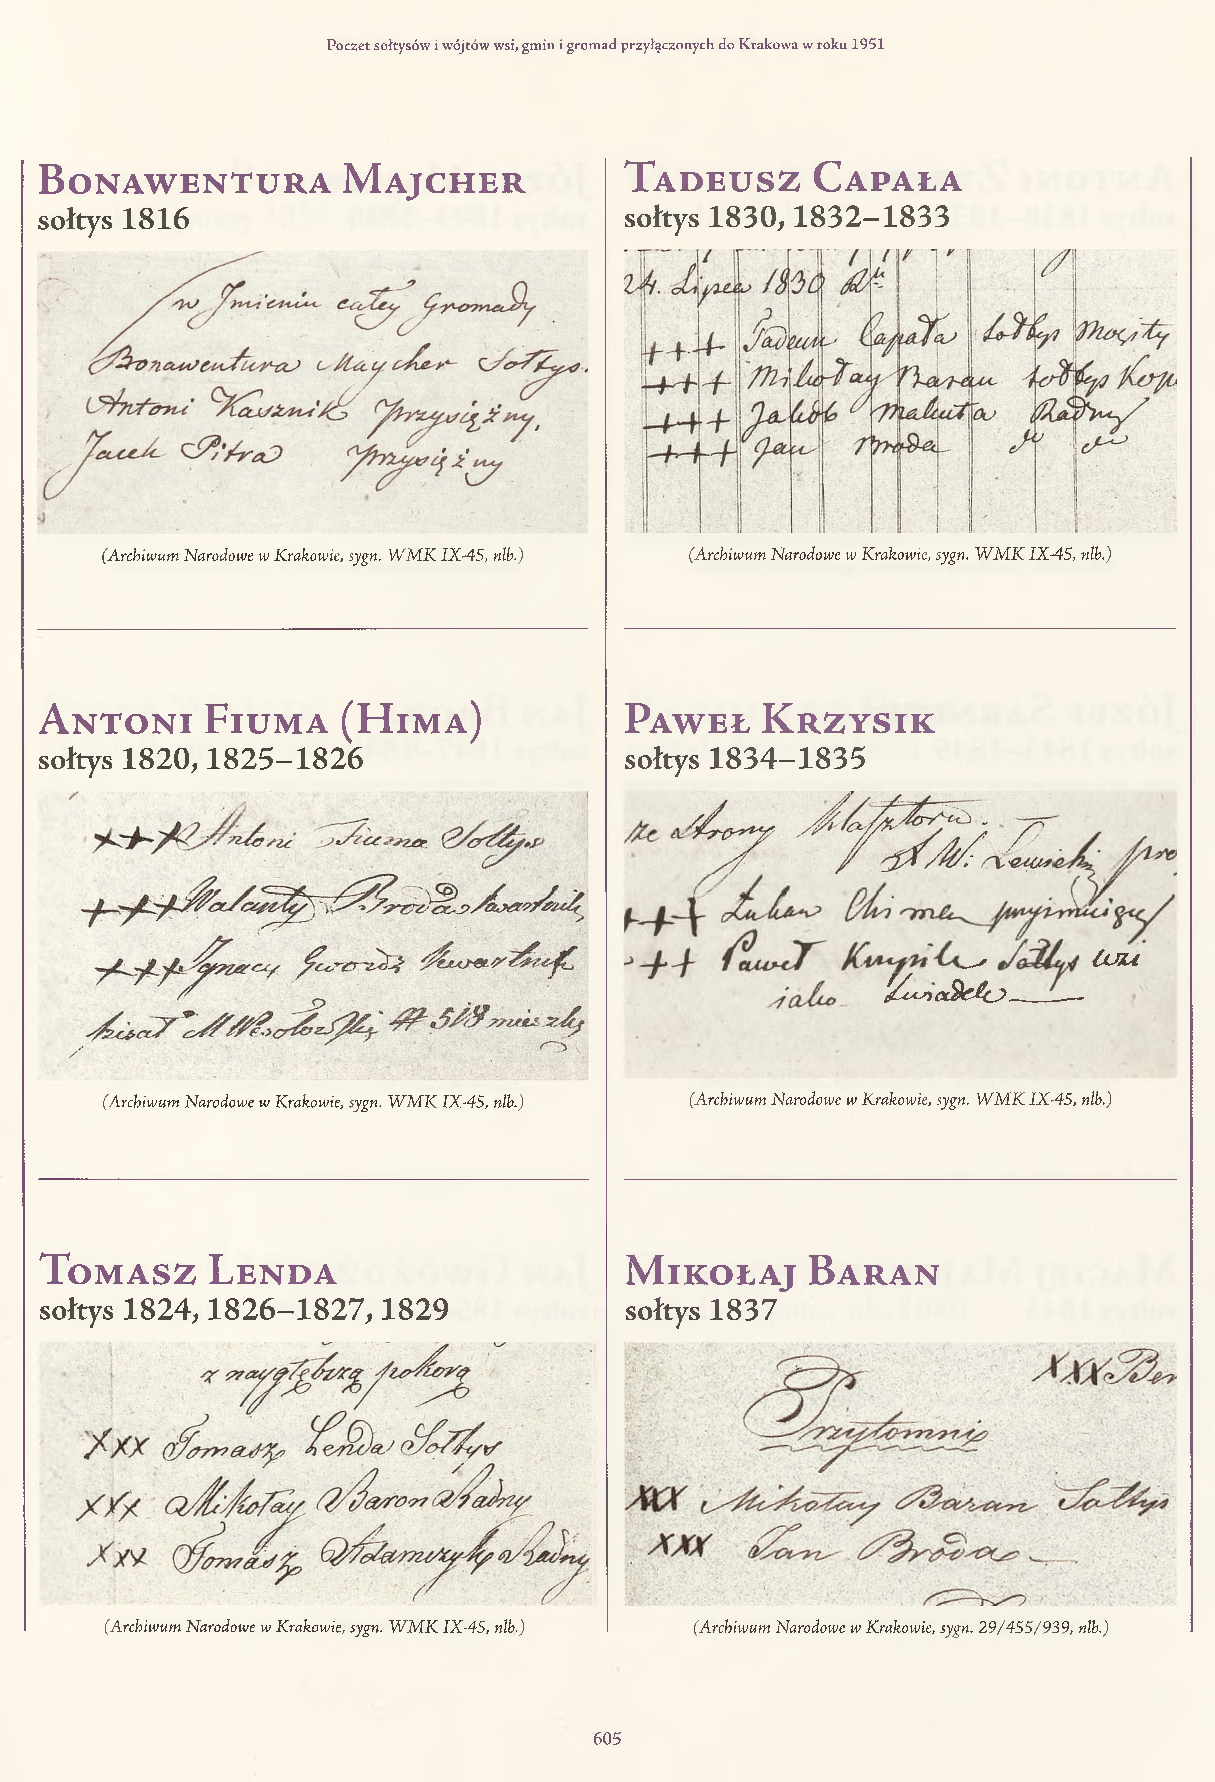 Poczet sołtysów i wójtów wsi, gmin i gromad przyłączonych do Krakowa w roku 1951
Bonawentura Majcher
sołtys 1816
w Jmieniu całey Gromady
Bonawentura Maycher Sołtys.
Antoni Kasznik Przysiężny,
Jacek Pitra Przysiężny
(Archiwum Narodowe w Krakowie, sygn. WMK IX-45, nlb.)
Antoni Fiuma (Hima)
sołtys 1820, 1825–1826
+++ Antoni Fiuma Sołtys
+++ Walanty Broda kwartnik
+++ Jgnacy Gwoźdź kwartnik
pisał M 518
(Archiwum Narodowe w Krakowie, sygn. WMK IX-45, nlb.)
Tomasz Lenda
sołtys 1824, 1826–1827, 1829
z naygłębszą pokorą
XXX Tomasz Lenda Sołtys
XXX Mikołay Baron Radny
XXX Tomasz Adamczyk Radny
(Archiwum Narodowe w Krakowie, sygn. WMK IX-45, nlb.)
Tadeusz Capała
sołtys 1830, 1832–1833
24. Lipca 1830 Ru
+++ Tadeus Capała sołtys Mogiły
+++ Mikołay Baran sołtys Kop
+++ Jakób Makuta Radny
+++ Jan Broda
(Archiwum Narodowe w Krakowie, sygn. WMK IX-45, nlb.)
Paweł Krzysik
sołtys 1834–1835
ze strony klasztoru.
W: Lewicki pro
+++ Łukasz
++ Paweł Krzysik Sołtys wsi
iako świadek
(Archiwum Narodowe w Krakowie, sygn. WMK IX-45, nlb.)
Mikołaj Baran
sołtys 1837
XXX Ber
Przytomni
XXX Mikołay Baran Sołtys
XXX Jan Broda
(Archiwum Narodowe w Krakowie, sygn. 29/455/939, nlb.)
605